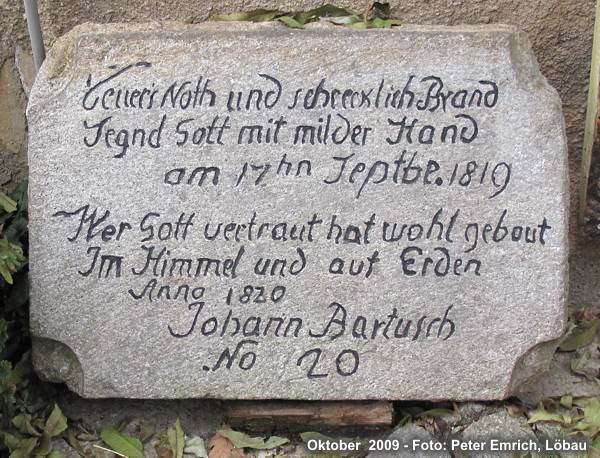 Feuers Noth und schrecklich Brand
Segnd Gott mit milder Hand
am 17hn Septbr. 1819
Wer Gott vertraut hat wohl gebaut
Im Himmel und auf Erden
Anno 1820
Johann Bartusch
No 20
Oktober 2009 - Foto: Peter Emrich, Löbau